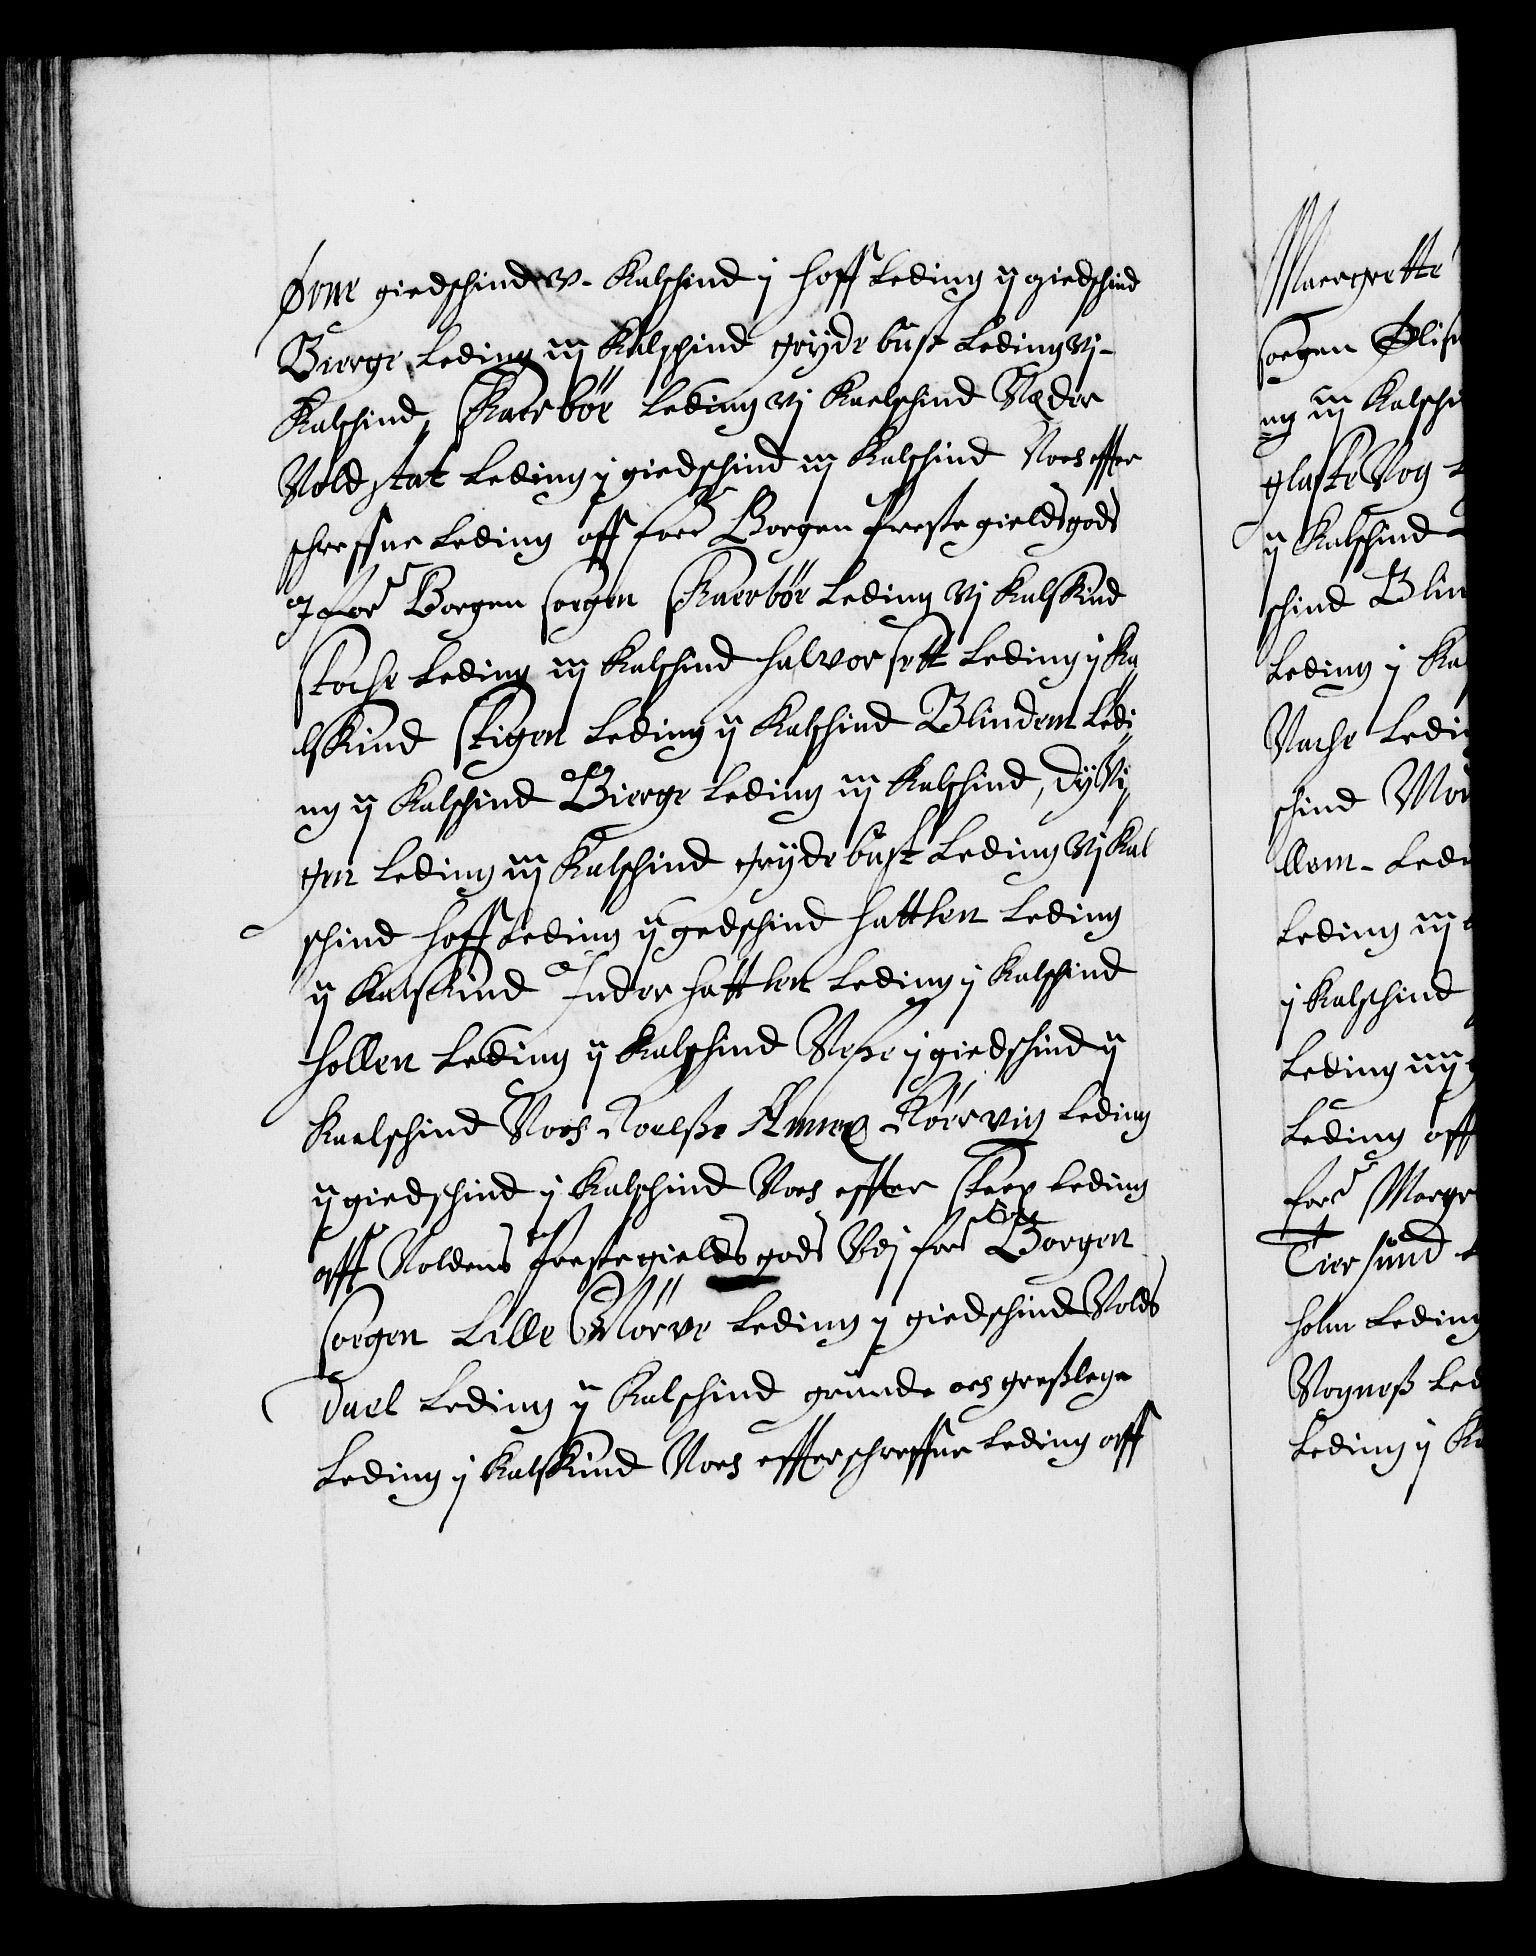 Ørne giedschind v. Kalschind j Hoff Leding ij giedschind
Bierge Leding iij Kalschind Grydebust Leding vj
Kalschind, Skaerbör Leding vj Kaelschind Neder
Voldstat Leding j giedschind iij Kalschind Noch effter
schreffne Leding aff for: Borgen Prestegieldsgods
J for: Borgen Soegen Skaerbör Leding vj Kalskind
Stoche Leding iij Kalschind Halvorsett Leding j Ka
lskind Stigen Leding ij Kalschind Blindem Ledi
ng ij Kalschind Bierge Leding iij Kalschind, Dyvi
gen Leding iij Kalschind Grydebust Leding vj Kal
schind Hoff Leding ij gedschind Hattlen Leding
ij Kalskind Inder Hattlen Leding j Kalschind
Hollen Leding ij Kalschind Neße j giedschind ij
Kaelschind Noch Körrvig Leding
ij giedschind j Kalschind Noch effter Leding
afft Voldens Prestegields gods Vdj for: Borgen
Soegen Lille Nörve Leding j giedschind Volds
dael Leding ij Kalschind grunde och greßlege
Leding j Kalskind Noch effterschreffne Leding aff
Maergrette
Soegen
ng iij Kalschi
glaste Vog
ij Kalschind
schind Blin
Leding j Kal
Vache Ledi
schind Mo
llem Ledi
Leding iij
j Kalschind
Leding iiij
Leding aff
for: Morgr
Tiersund
holm Leding
Vogneß Led
Leding ij Ka